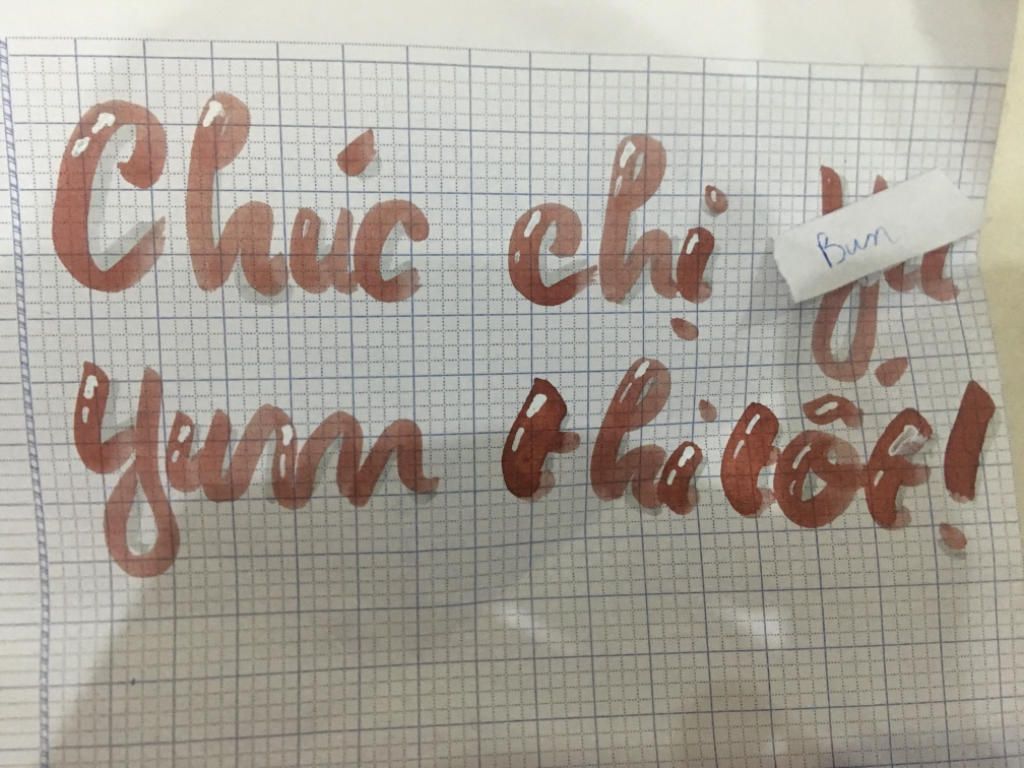 Chúc chị Bum
Yum thi tốt!